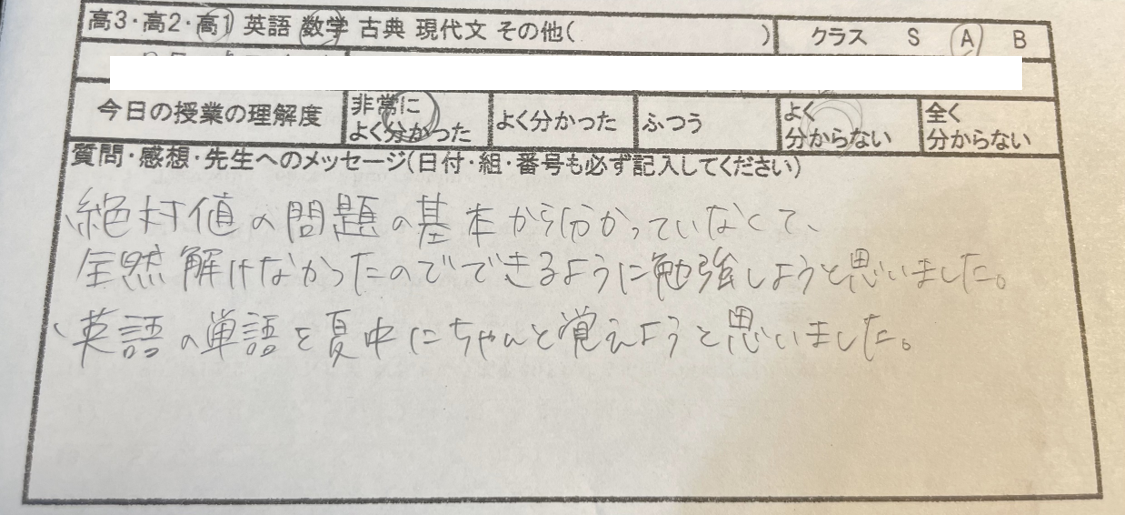 高3・高2・高1 英語 数学 古典 現代文 その他( ) クラス S A B
今日の授業の理解度 非常によく分かった よく分かった ふつう よく分からない 全く分からない
質問・感想・先生へのメッセージ(日付・組・番号も必ず記入してください)
、絶対値の問題の基本から分かっていなくて、
全然解けなかったのでできるように勉強しようと思いました。
、英語の単語を夏中にちゃんと覚えようと思いました。